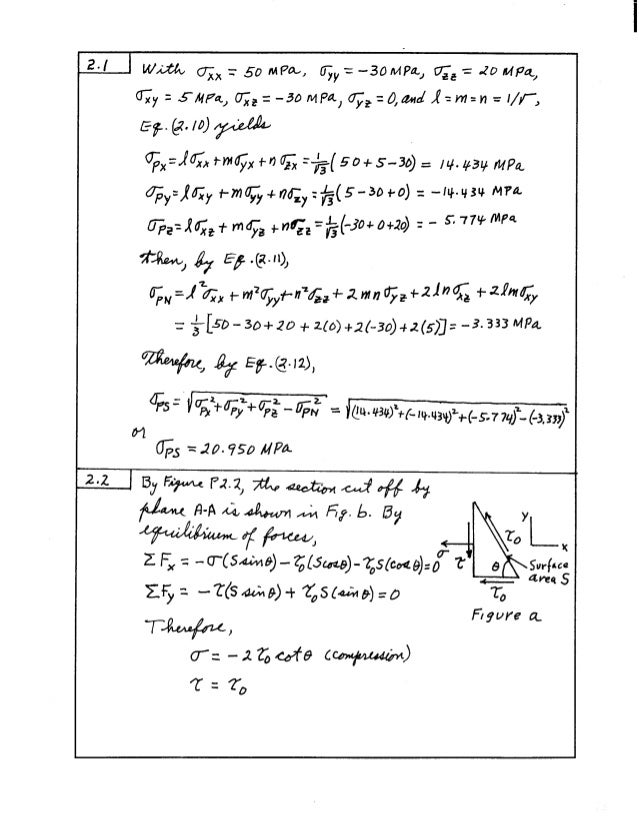 2.1
With σxx = 50 MPa, σyy = -30 MPa, σzz = 20 MPa,
σxy = 5 MPa, σxz = -30 MPa, σyz = 0, and l = m = n = 1/√,
Eq. (2.10) yields
σPx = lσxx + mσyx + nσzx = 1/√3 (50+5-30) = 14.434 MPa
σPy = lσxy + mσyy + nσzy = 1/√3 (5-30+0) = -14.434 MPa
σPz = lσxz + mσyz + nσzz = 1/√3 (-30+0+20) = - 5.774 MPa
then, by Eq. (2.11),
σPN = l²σxx + m²σyy + n²σzz + 2mnσyz + 2lnσxz + 2lmσxy
= 1/3 [50-30+20+2(0)+2(-30)+2(5)] = -3.333 MPa
Therefore, by Eq. (2.12),
σPS = √(σPx² + σPy² + σPz² - σPN²) = √((14.434)²+(-14.434)²+(-5.774)²-(-3.333)²)
or
σPS = 20.950 MPa
2.2
By Figure P2.2, the section cut off by
plane A-A is shown in Fig. b. By
equilibrium of forces,
ΣFx = -σ(S sinθ) - τ0(S cosθ) - τ0S(cosθ) = 0
ΣFy = -τ(S sinθ) + τ0S(sinθ) = 0
Therefore,
σ = -2τ0 cotθ (compression)
τ = τ0
y
x
τ0
σ
τ
θ
Surface
area S
τ0
Figure a